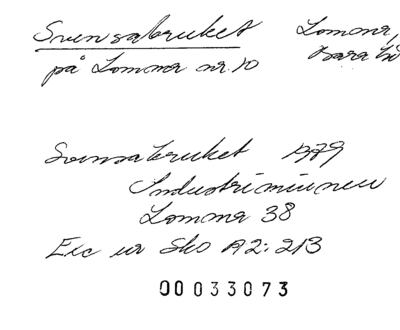 Svensabruket Lomma,
på Lomma nr. 10 Bara
Svensabruket 1979
Industriminnen
Lomma 38
Exc ur Sko A2: 213
00033073